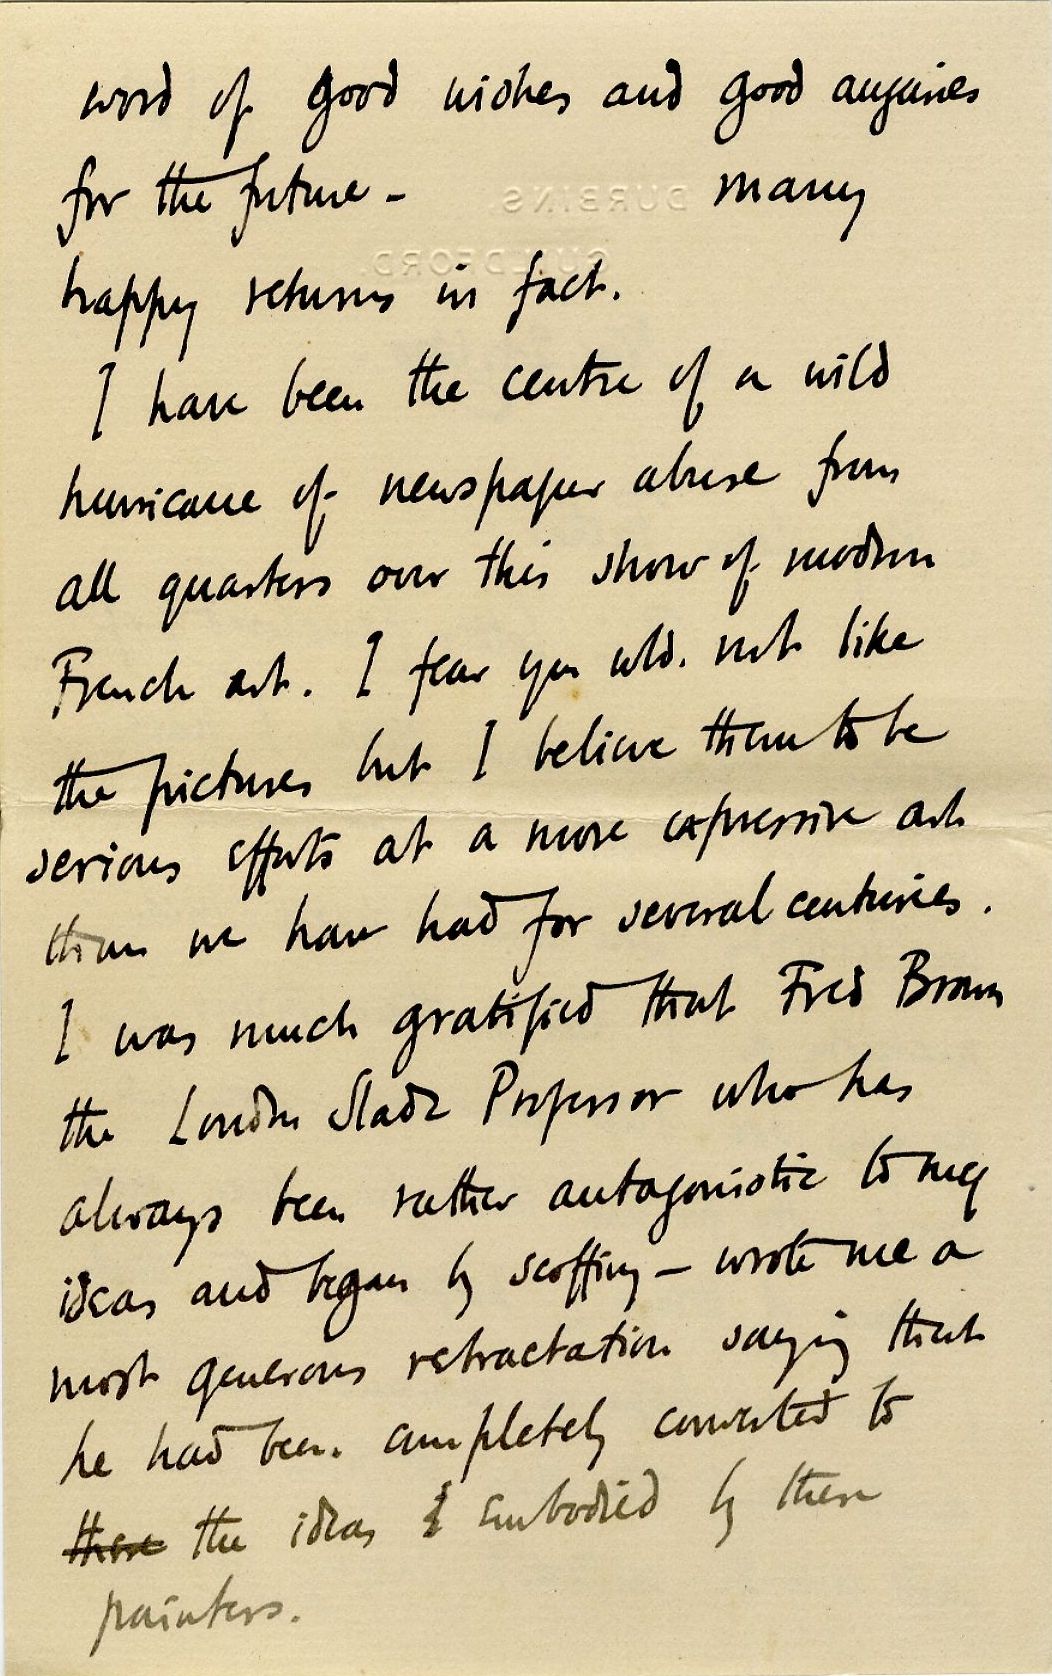 word of good wishes and good auguries
for the future - many
DURBINS
GUILDFORD.
happy returns in fact.
I have been the centre of a wild
hurricane of newspaper abuse from
all quarters over this show of modern
French art. I fear you wld. not like
the pictures but I believe them to be
serious efforts at a more expressive art
than we have had for several centuries.
I was much gratified that Fred Brown
the London Slade Professor who has
always been rather antagonistic to my
ideas and began by scoffing - wrote me a
most generous retractation saying that
he had been completely converted to
these the ideas & embodied by these
painters.